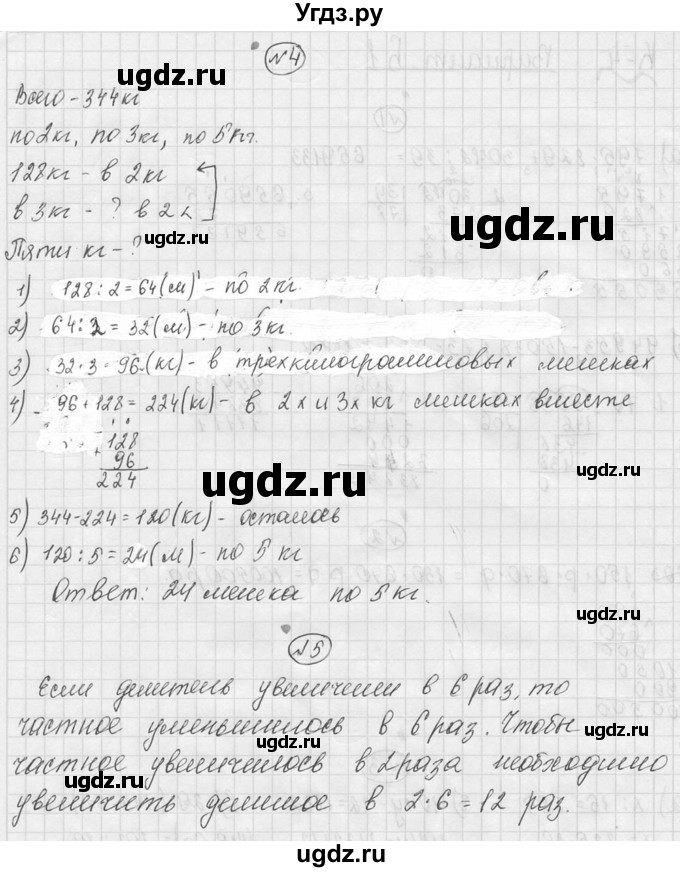 Угдз.ру
№4
Всего - 344кг
по 2кг, по 3кг, по 5кг.
128кг - в 2кг
в 3кг - ? в 2
Пяти кг - ?
1) 128 : 2 = 64(м) - по 2кг.
2) 64 : 2 = 32(м) - по 3кг.
3) 32 · 3 = 96(кг) - в трёхкилограммовых мешках
4) 96 + 128 = 224(кг) - в 2х и 3х кг мешках вместе
+ 128
96
224
5) 344 - 224 = 120(кг) - осталось
6) 120 : 5 = 24(м) - по 5 кг
Ответ: 24 мешка по 5кг.
№5
Если делитель увеличили в 6 раз, то
частное уменьшилось в 6 раз. Чтобы
частное увеличилось в 2 раза необходимо
увеличить делимое в 2·6 = 12 раз.
ugdz.ru
ugdz.ru
ugdz.ru
ugdz.ru
ugdz.ru
ugdz.ru
ugdz.ru
ugdz.ru
ugdz.ru
ugdz.ru
ugdz.ru